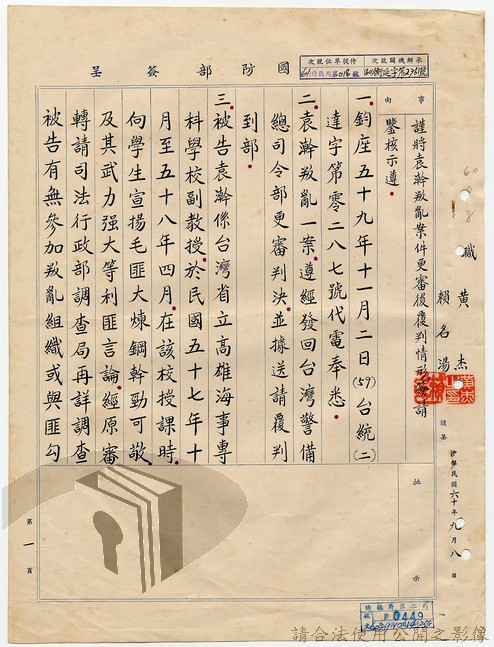 國防部簽呈
承辦機關號次
侍從單位號次
事由
謹將袁榦叛亂案件更審後覆判情形簽請
鑒核示遵
一、鈞座五十九年十一月二日(59)台統(二)
達字第零二八七號代電奉悉。
二、袁榦叛亂一案，遵經發回台灣警備
總司令部更審判決，並據送請覆判
到部。
三、被告袁榦係台灣省立高雄海事專
科學校副教授，於民國五十七年十
月至五十八年四月，在該校授課時，
向學生宣揚毛匪大煉鋼幹勁可敬，
及其武力强大等利匪言論，經原審
轉請司法行政部調查局再詳調查
被告有無參加叛亂組織或與匪勾
職
黃杰
賴名湯
謹呈
中華民國六十年九月八日
批示
第一頁
0449
請合法使用公開之影像